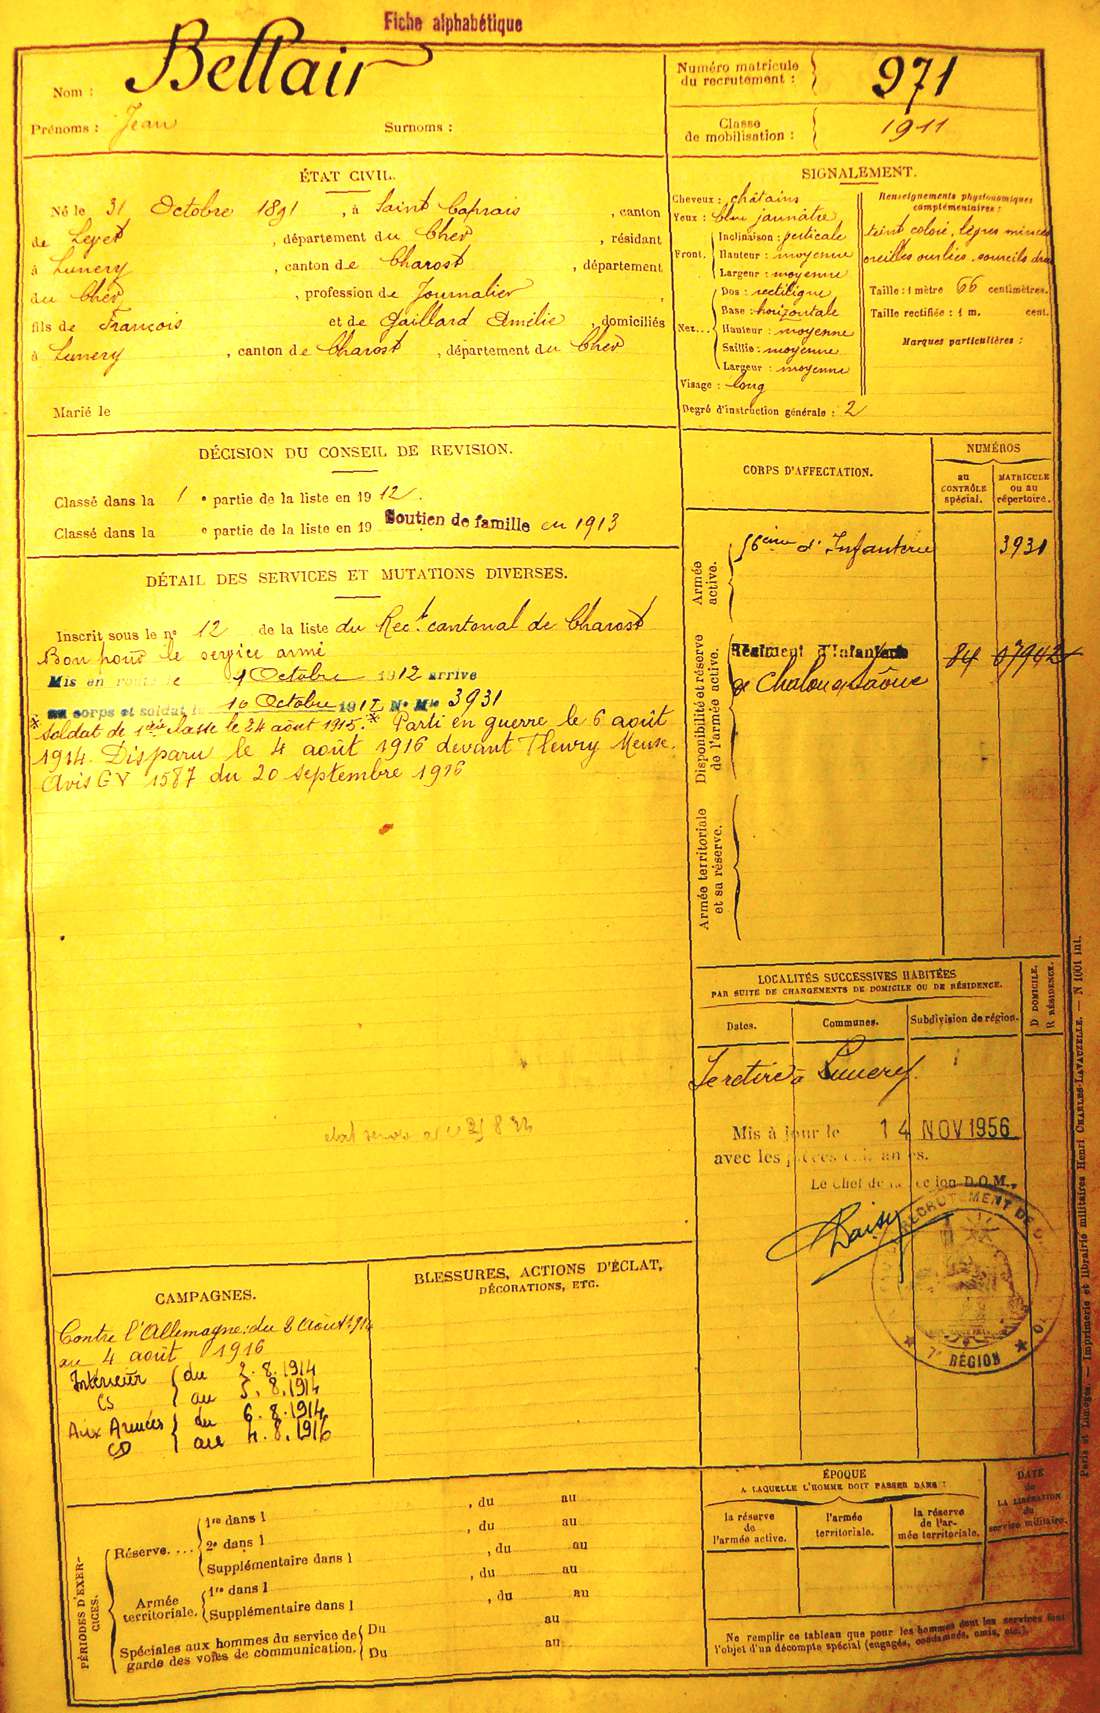 Fiche alphabétique
Nom : Bellair
Prénoms : Jean Surnoms :
Numéro matricule du recrutement : 971
Classe de mobilisation : 1911
ÉTAT CIVIL.
Né le 31 Octobre 1891, à Saint Caprais, canton
de Levet, département du Cher, résidant
à Lunery, canton de Charost, département
du Cher, profession de Journalier
fils de François et de Gaillard Amélie domiciliés
à Lunery, canton de Charost, département du Cher
Marié le
SIGNALEMENT.
Cheveux : châtains
Yeux : bleu jaunâtre
Front. Inclinaison : verticale
Hauteur : moyenne
Largeur : moyenne
Nez... Dos : rectiligne
Base : horizontale
Hauteur : moyenne
Saillie : moyenne
Largeur : moyenne
Visage : long
Degré d'instruction générale : 2
Renseignements physionomiques complémentaires :
teint coloré, lèvres minces
oreilles ourlées, sourcils
Taille : 1 mètre 66 centimètres.
Taille rectifiée : 1 m. cent.
Marques particulières :
DÉCISION DU CONSEIL DE REVISION.
Classé dans la 1 e partie de la liste en 1912.
Classé dans la e partie de la liste en 19 Soutien de famille en 1913
DÉTAIL DES SERVICES ET MUTATIONS DIVERSES.
Inscrit sous le no 12 de la liste du Rect cantonal de Charost
Bon pour le service armé
Mis en route le 9 Octobre 1912 arrivé
au corps et soldat le 10 Octobre 1912 No Mle 3931
* Soldat de 1ère classe le 24 août 1915. * Parti en guerre le 6 août
1914. Disparu le 4 août 1916 devant Fleury Meuse.
Avis GV 1587 du 20 septembre 1916
CORPS D'AFFECTATION.
NUMÉROS
au CONTRÔLE spécial.
MATRICULE ou au répertoire.
Armée active.
56ème d'Infanterie 3931
Disponibilité et réserve de l'armée active.
Régiment d'Infanterie 84 07942
de Chalon s/Saône
Armée territoriale et sa réserve.
LOCALITÉS SUCCESSIVES HABITÉES
PAR SUITE DE CHANGEMENTS DE DOMICILE OU DE RÉSIDENCE.
Dates. Communes. Subdivision de région. D DOMICILE. R RÉSIDENCE.
Se retire à Lunery
Mis à jour le 14 NOV 1956
avec les pièces
Le Chef de la section D.O.M.,
RECRUTEMENT DE
★ 7e RÉGION ★
CAMPAGNES.
Contre l'Allemagne : du 2 Août 1914
au 4 août 1916
Intérieur CS { du 2.8.1914
au 5.8.1914
Aux Armées CD { du 6.8.1914
au 4.8.1916
BLESSURES, ACTIONS D'ÉCLAT,
DÉCORATIONS, ETC.
PÉRIODES D'EXERCICES.
Réserve.... 1re dans l , du au
2e dans l , du au
Supplémentaire dans l , du au
Armée territoriale. 1re dans l , du au
Supplémentaire dans l , du au
Spéciales aux hommes du service de garde des voies de communication. Du au
Du au
ÉPOQUE
A LAQUELLE L'HOMME DOIT PASSER DANS :
la réserve de l'armée active.
l'armée territoriale.
la réserve de l'armée territoriale.
DATE de LA LIBÉRATION du service militaire.
Ne remplir ce tableau que pour les hommes dont les services font
l'objet d'un décompte spécial (engagés, condamnés, omis, etc.).
Paris et Limoges. — Imprimerie et librairie militaires Henri CHARLES-LAVAUZELLE. — N 1001 int.